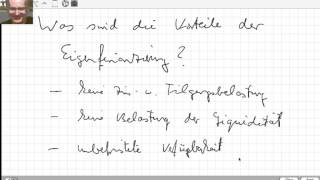 Was sind die Vorteile der
Eigenfinanzierung?
- keine Zins- u. Tilgungsbelastung
- keine Belastung der Liquidität
- unbefristete Verfügbarkeit